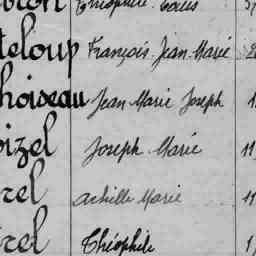 Théophile Louis
teloup François Jean Marie
hoiseau Jean Marie Joseph 1
oizel Joseph Marie 11
rel Achille Marie 11
rel Théophile 1